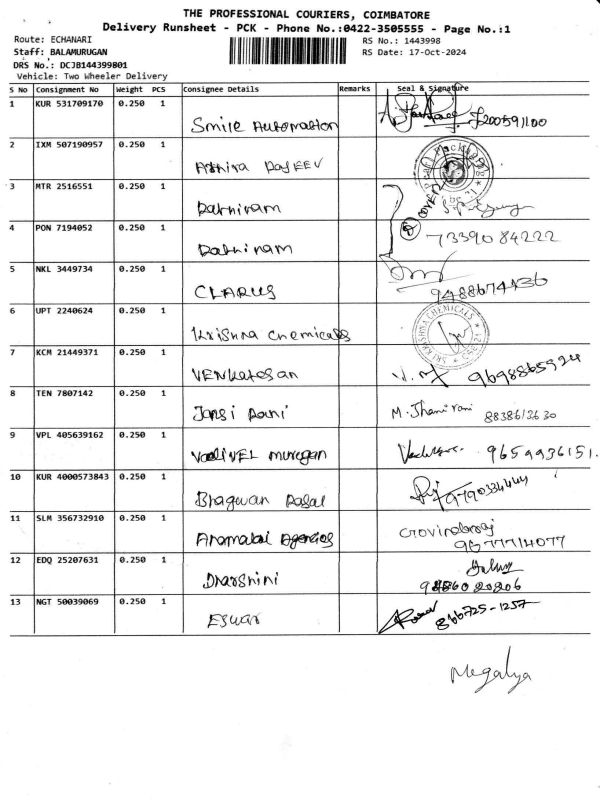 THE PROFESSIONAL COURIERS, COIMBATORE
Delivery Runsheet - PCK - Phone No.:0422-3505555 - Page No.:1
Route: ECHANARI
RS No.: 1443998
Staff: BALAMURUGAN
RS Date: 17-Oct-2024
DRS No.: DCJB144399801
Vehicle: Two Wheeler Delivery
S No Consignment No Weight PCS Consignee Details Remarks Seal & Signature
1 KUR 531709170 0.250 1 Smile Automation
2 IXM 507190957 0.250 1 Athira RajEEV
3 MTR 2516551 0.250 1 Rathiram
4 PON 7194052 0.250 1 Rathinam 7339084222
5 NKL 3449734 0.250 1 CLARUS
6 UPT 2240624 0.250 1 Krishna chemicals SRI KRISHNA CHEMICALS
7 KCM 21449371 0.250 1 VENkatesan 9698865924
8 TEN 7807142 0.250 1 Jansi Rani M. Jhani rani 8838613630
9 VPL 405639162 0.250 1 VadiVEL murugan 9659936151.
10 KUR 4000573843 0.250 1 Bhagwan
11 SLM 356732910 0.250 1 Agencies Govindaraj
9677714077
12 EDQ 25207631 0.250 1 Dharshini
13 NGT 50039069 0.250 1 Eswar 866725-1257
Megalya